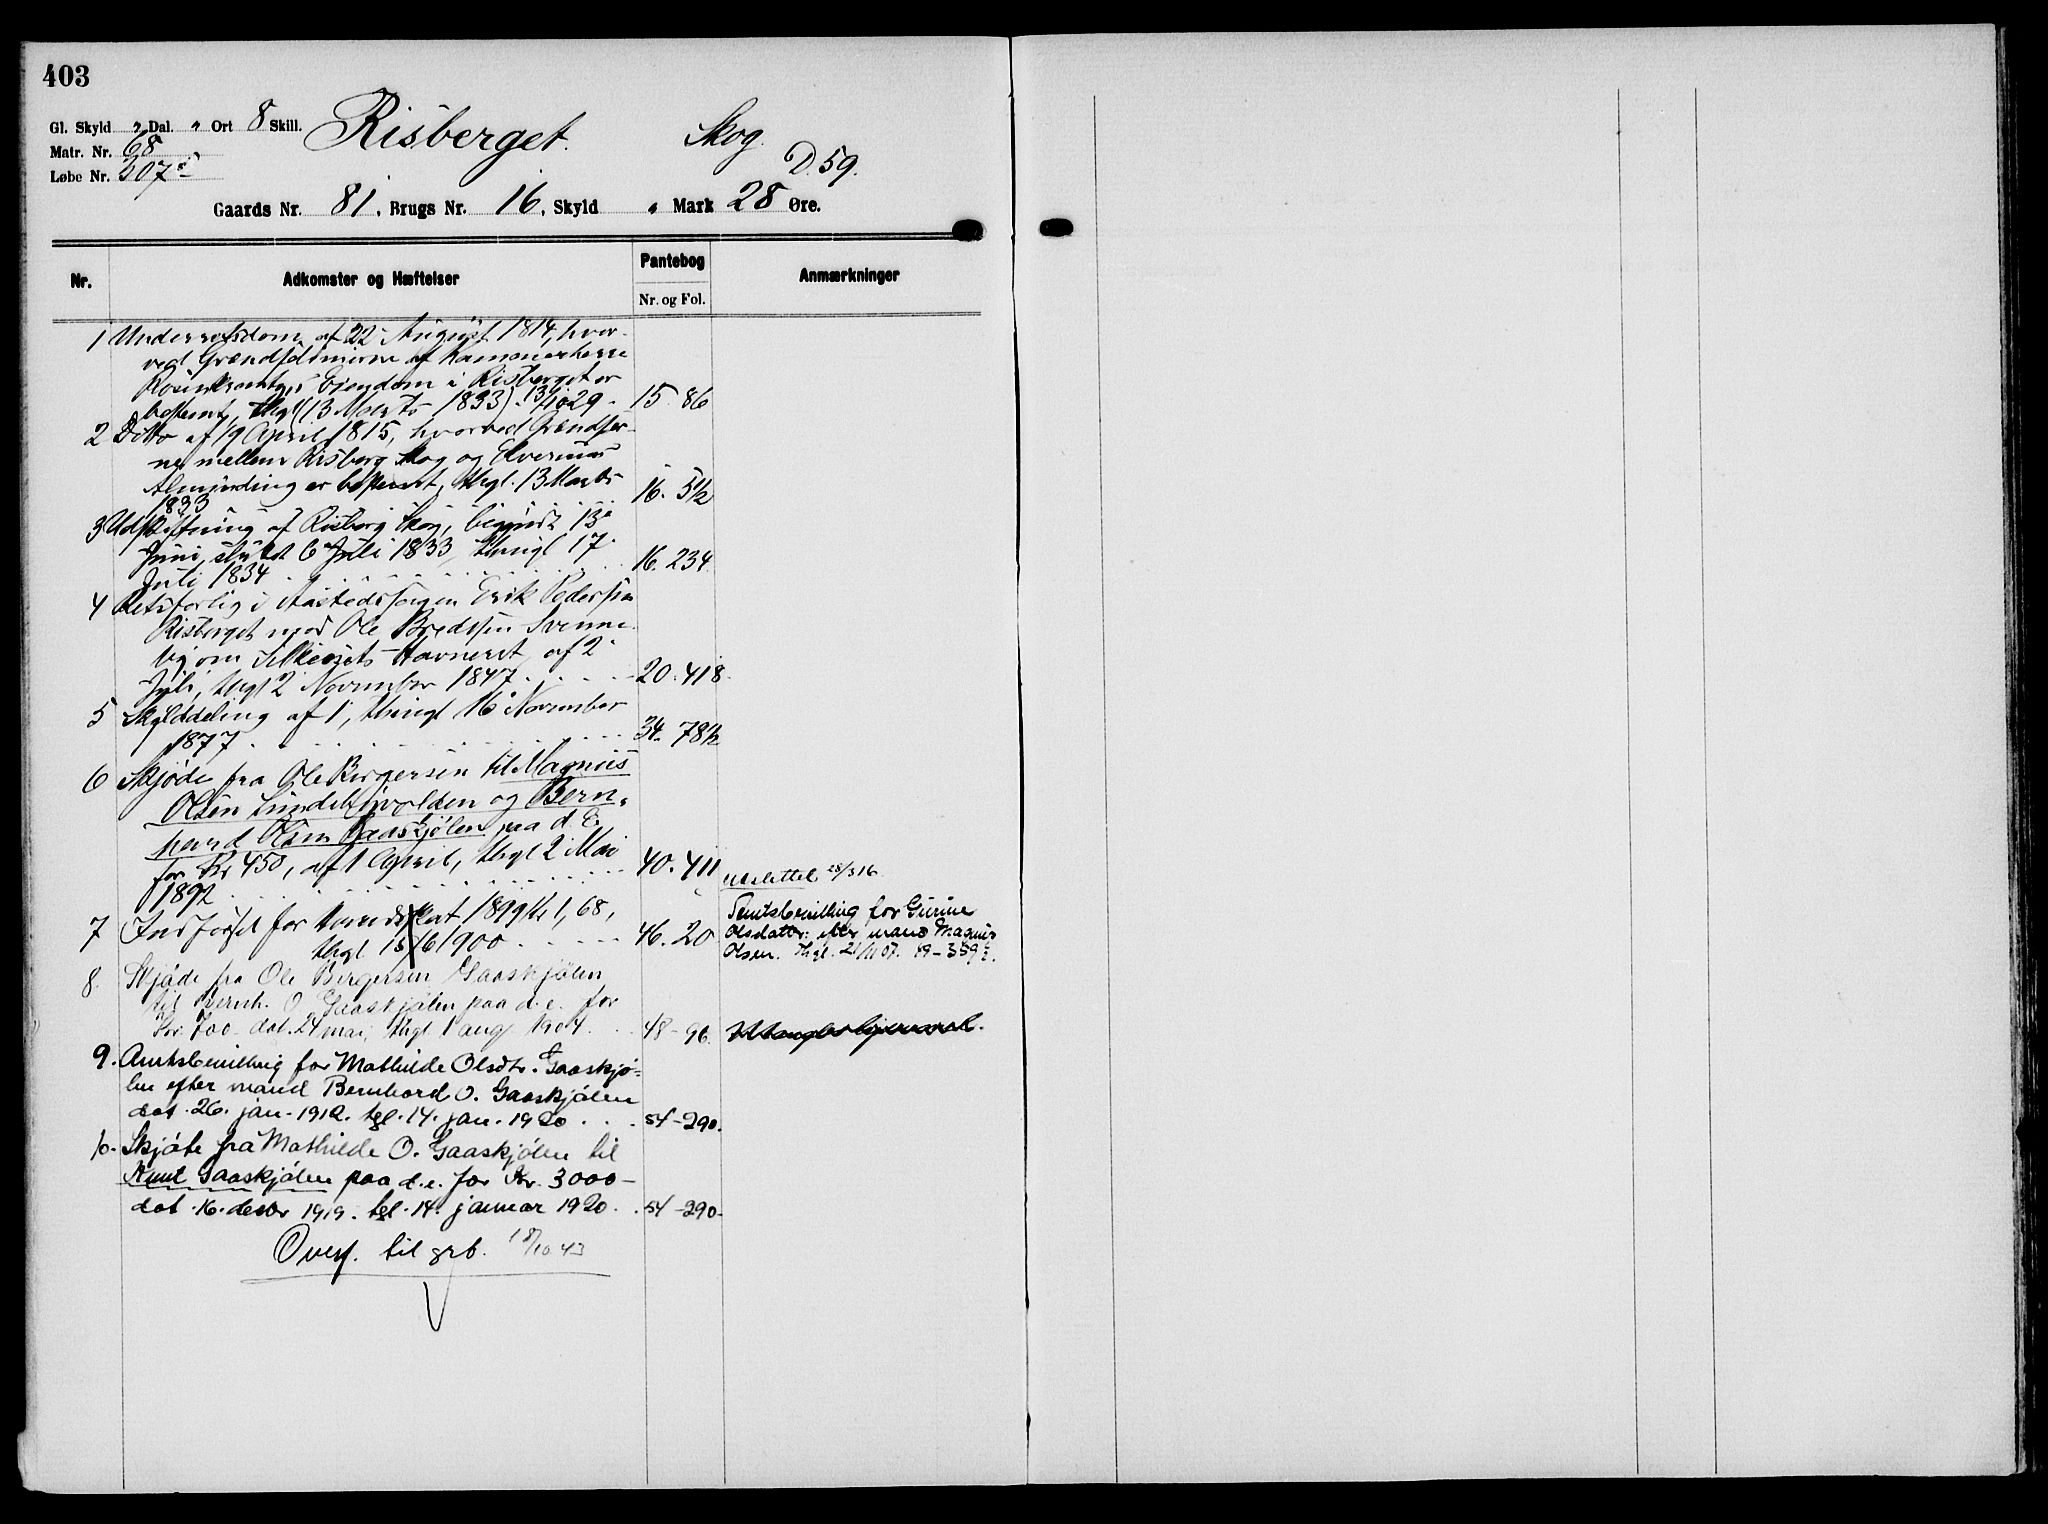 403
Gl. Skyld " Dal. " Ort 8 Skill. Risberget. Skog.
Matr. Nr. 68
Løbe Nr. 207 D. 59.
Gaards Nr. 81, Brugs Nr. 16, Skyld " Mark 28 Øre.
Nr. Adkomster og Hæftelser Pantebog Anmærkninger
Nr. og Fol.
1 Underretsdom af 22 August 1814, hvor-
ved Grændselinierne af Kammerherre
Rosenkrantz's Eiendom i Risberget er
bestemt, thgl (13 Marts 1833). 13/10 29. 15 86
2 Ditto af 19 April 1815, hvorved Grændser-
ne mellem Risberg Skog og Elverums
Alminding er bestemt, thgl. 13 Marts
1833 16. 51/2
3 Udskiftning af Risberg Skog, begyndt 13
Juni, sluttet 6 Juli 1833, thingl 17
Juli 1834 16. 234
4 Retsforlig i Aastedssagen Erik Pedersen
Risberget mod Ole Bredesen Svenne-
by om Havneret af 2
Juli, thgl 2 November 1847. 20. 418.
5 Skylddeling af 1, thingl 16 November
1877. 34. 781/2
6 Skjøde fra Ole Birgersen til Magnus
Olsen og Bern-
hard Olsen Gaaskjølen paa d. E.
for Kr 450, af 1 April, thgl 2 Mai
1892 40. 411
udslettet 28/3 16
7 for 1899 Kr 1,68,
thgl 15/6 1900 46. 20
Amtsbevilling for Gurine
Olsdatter efter mand Magnus
Olsen. Thgl. 21/11 07. 49-389
8. Skjøde fra Ole Bergersen Gaaskjølen
til Bernh. O. Gaaskjølen paa d. e. for
Kr. 700 dat. 24 mai, thgl 1 aug 1904. 48-96.
9. Amtsbevilling for Mathilde Olsdtr. Gaaskjø-
len efter mand Bernhard O. Gaaskjølen
dat. 26. jan. 1912. tgl. 14. jan. 1920 54-290.
10. Skjøte fra Mathilde O. Gaaskjølen til
Knut Gaaskjølen paa d.e. for Kr. 3000-
dat. 16. desbr 1919. tgl. 14. januar 1920. 54-290.
Overf. til grb. 18/10 43